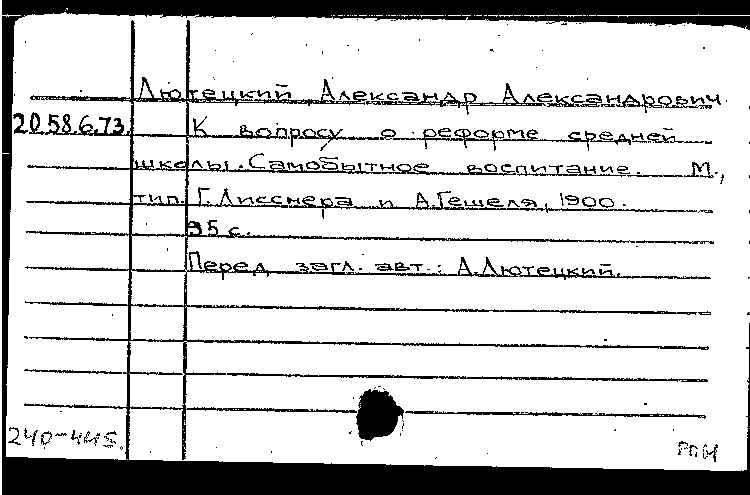 Лютецкий, Александр Александрович
20.58.6.73. К вопросу о реформе средней
школы. Самобытное воспитание. М.,
тип. Г. Лисснера и А. Гешеля, 1900.
95 с.
Перед загл. авт.: А. Лютецкий.
240-445.